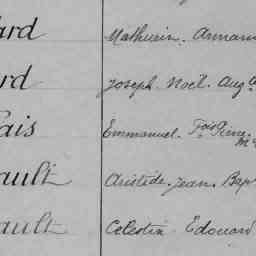 ard Mathurin. Armam
ard Joseph Noël. Aug
ais Emmanuel. Fois Pierre. M
ault Aristide. Jean. Bap
ault Celestin Edouard